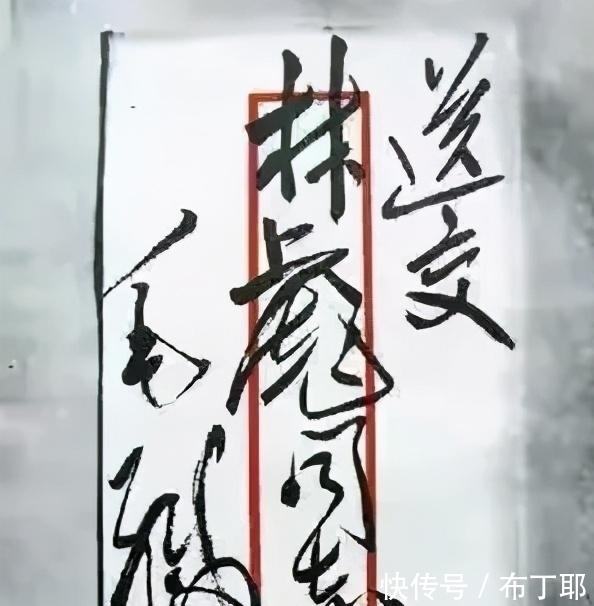 送交
林彪同志
毛
快传号 / 布丁耶